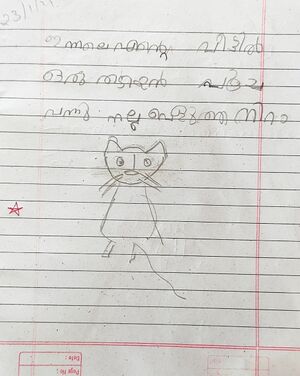 23/1/
ഇന്നലെ എന്റെ വീട്ടിൽ
ഒരു തടിയൻ പൂച്ച
വന്നു നല്ല വെളുത്ത നിറം
Date :
Page No :